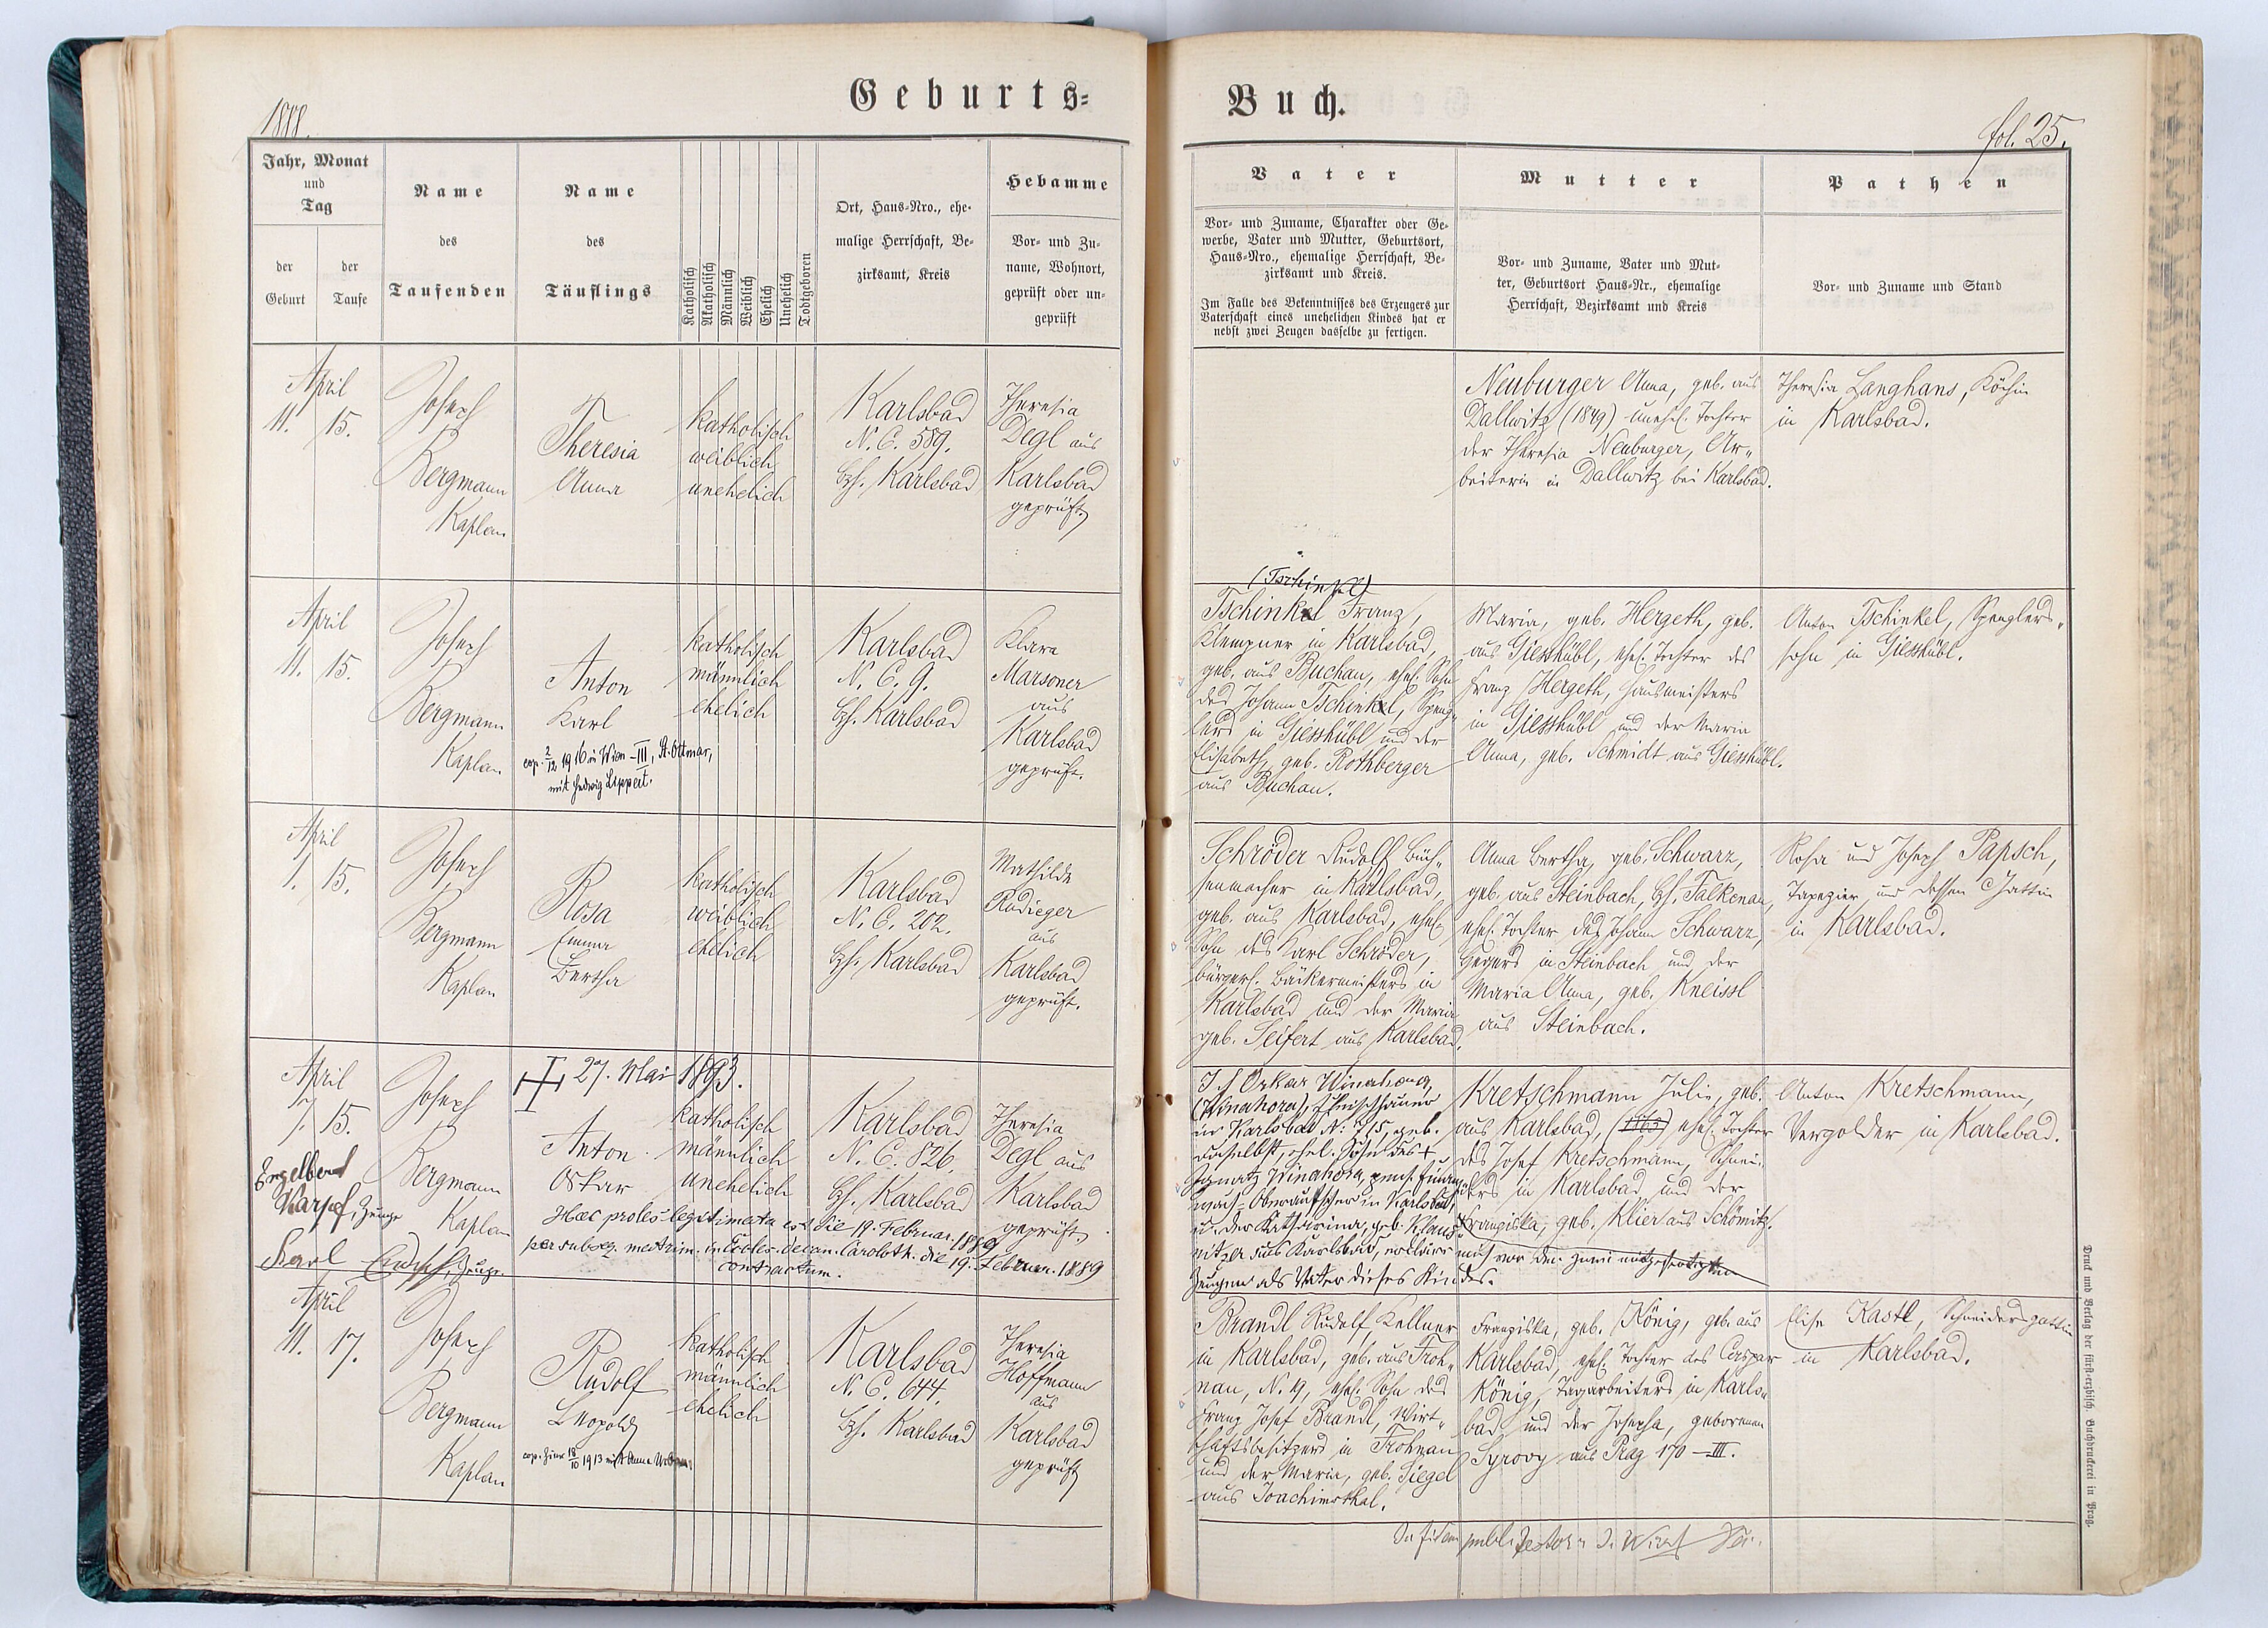 Geburts-
Buch.
1888.
fol. 25.
Jahr, Monat
und
Tag
der
Geburt
der
Taufe
Name
des
Taufenden
Name
des
Täuflings
Katholisch
Akatholisch
Männlich
Weiblich
Ehelich
Unehelich
Todtgeboren
Ort, Haus-Nro., ehe-
malige Herrschaft, Be-
zirksamt, Kreis
Hebamme
Vor- und Zu-
name, Wohnort,
geprüft oder un-
geprüft
Vater
Vor- und Zuname, Charakter oder Ge-
werbe, Vater und Mutter, Geburtsort,
Haus-Nro., ehemalige Herrschaft, Be-
zirksamt und Kreis.
Im Falle des Bekenntnisses des Erzeugers zur
Vaterschaft eines unehelichen Kindes hat er
nebst zwei Zeugen dasselbe zu fertigen.
Mutter
Vor- und Zuname, Vater und Mut-
ter, Geburtsort Haus-Nr., ehemalige
Herrschaft, Bezirksamt und Kreis
Pathen
Vor- und Zuname und Stand
April
11. 15.
Joseph
Bergmann
Kaplan
Theresia
Anna
katholisch
weiblich
unehelich
Karlsbad
N. C. 589.
Bzh. Karlsbad
Theresia
Degl aus
Karlsbad
geprüft.
Neuburger Anna, geb. aus
Dallwitz (1849) unehel. Tochter
der Theresia Neuburger, Ar-
beiterin in Dallwitz bei Karlsbad.
Theresia Langhans, Köchin
in Karlsbad.
April
11. 15.
Joseph
Bergmann
Kaplan
Anton
Karl
cop. 2/12 1916 in Wien-III, St. Ottmar,
mit Hedwig Lippert.
katholisch
männlich
ehelich
Karlsbad
N. C. 9.
Bzh. Karlsbad
Klara
Marsoner
aus
Karlsbad
geprüft.
(Tschinkl)
Tschinkel Franz,
Klempner in Karlsbad,
geb. aus Buchau, ehel. Sohn
des Johann Tschinkel, Speng-
lers in Giesshübl und der
Elisabeth, geb. Rothberger
aus Buchau.
Maria, geb. Hergeth, geb.
aus Giesshübl, ehel. Tochter des
Franz Hergeth, Hausmeisters
in Giesshübl und der Maria
Anna, geb. Schmidt aus Giesshübl.
Anton Tschinkel, Spenglers-
sohn in Giesshübl.
April
1. 15.
Joseph
Bergmann
Kaplan
Rosa
Emma
Bertha
katholisch
weiblich
ehelich
Karlsbad
N. C. 202.
Bzh. Karlsbad
Mathilde
Rudieger
aus
Karlsbad
geprüft.
Schröder Rudolf Büch-
senmacher in Karlsbad,
geb. aus Karlsbad, ehel.
Sohn des Karl Schröder,
bürgerl. Bäckermeisters in
Karlsbad und der Maria
geb. Seifert aus Karlsbad.
Anna Bertha, geb. Schwarz,
geb. aus Steinbach, Bzh. Falkenau,
ehel. Tochter des Johann Schwarz,
Hegers in Steinbach und der
Maria Anna, geb. Kneissl
aus Steinbach.
Rosa und Joseph Papsch,
Tapezier und dessen Gattin
in Karlsbad.
April
7. 15.
Engelbert
Karpf, Zeuge
Karl Zeuge.
Joseph
Bergmann
Kaplan
27. Mai 1893.
Anton
Oskar
katholisch
männlich
unehelich
Haec proles legitimata est die 19. Februar. 1889
per subseq. matrim. in Eccles. decan. Caroloth. die 19. Februar. 1889
contractum.
Karlsbad
N. C. 826.
Bzh. Karlsbad
Theresia
Degl aus
Karlsbad
geprüft.
Oskar Winahora,
(Winahora), Fleischhauer
in Karlsbad N: 715, geb.
daselbst, ehel. Sohn des +
Ignatz Winahora, pens. Finanz-
wach-Oberaufseher in Karlsbad,
u. der Katharina, geb. Klaus-
nitzer aus Karlsbad, erkläre mich vor den zwei mitgefertigten
Zeugen als Vater dieses Kindes.
Kretschmann Julie, geb.
aus Karlsbad, (1863) ehel. Tochter
des Josef Kretschmann, Schnei-
ders in Karlsbad und der
Franziska, geb. Klier aus Schömitz.
Anton Kretschmann,
Vergolder in Karlsbad.
April
11. 17.
Joseph
Bergmann
Kaplan
Rudolf
Leopold
cop. 18/10 1913 mit Anna Urban.
katholisch
männlich
ehelich
Karlsbad
N. C. 644.
Bzh. Karlsbad
Theresia
Hoffmann
aus
Karlsbad
geprüft
Brandl Rudolf, Kellner
in Karlsbad, geb. aus Froh-
nau, N. 19, ehel. Sohn des
Franz Josef Brandl, Wirt-
schaftsbesitzers in Frohnau
und der Maria, geb. Siegel
aus Joachimsthal.
Franziska, geb. König, geb. aus
Karlsbad, ehel. Tochter des Caspar
König, Tagarbeiters in Karls-
bad und der Josepha, geborenen
Syrovy aus Prag 170-III.
Elise Kastl, Schneidersgattin
in Karlsbad.
Druck und Verlag der fürst-erzbisch. Buchdruckerei in Prag.